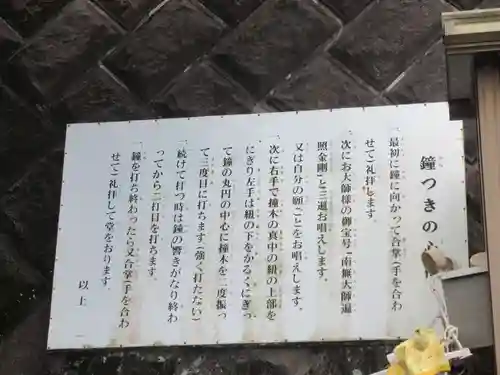 鐘つきの
一、最初に鐘に向かって合掌(手を合わ
せて)礼拝します。
一、次にお大師様の御宝号「南無大師遍
照金剛」と三遍お唱えします。
又は自分の願ごとをお唱えします。
一、次に右手で撞木の真中の紐の上部を
にぎり左手は紐の下をかるくにぎっ
て鐘の丸円の中心に撞木を二度振っ
て三度目に打ちます(強く打たない)
一、続けて打つ時は鐘の響きがなり終わ
ってから二打目を打ちます。
一、鐘を打ち終わったら又合掌(手を合わ
せて)礼拝して堂をおります。
以上